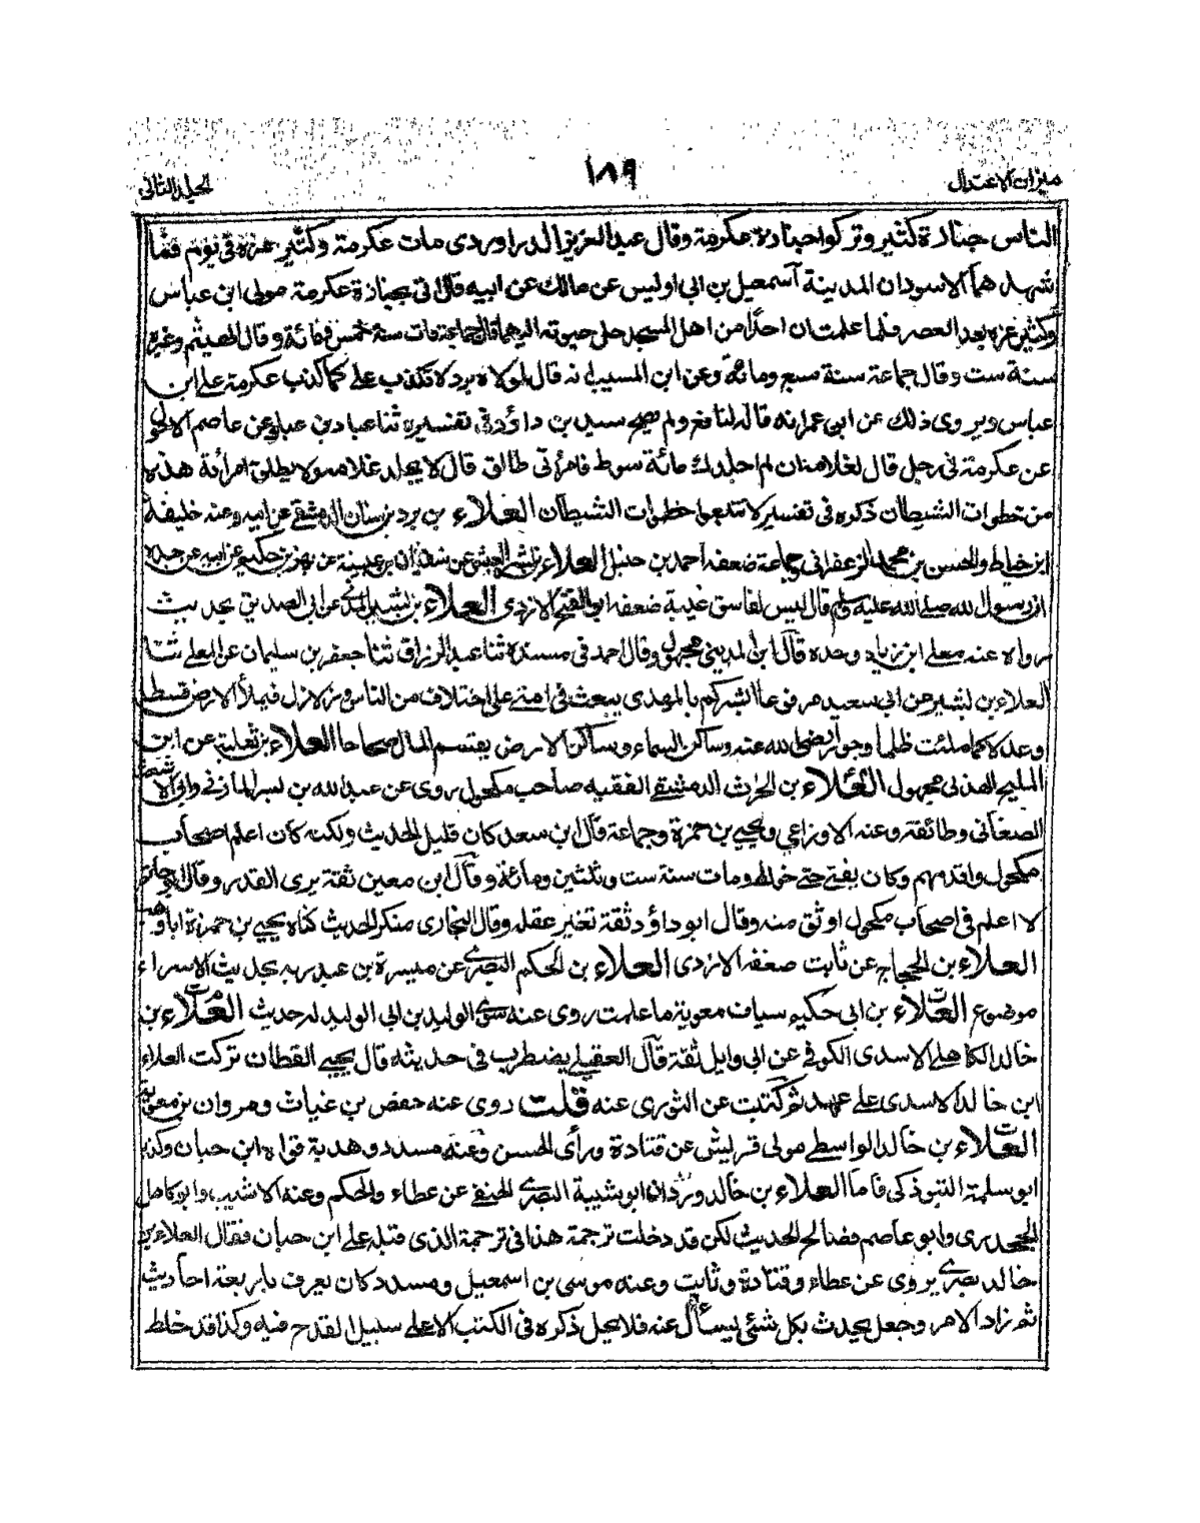 ميزان الاعتدال ١٨٩ الجلد الثانى
الناس جنازة كثير وتركوا جنازة عكرمة وقال عبد العزيز الدراوردى مات عكرمة وكثير عزة فى يوم فما
شهد هما الا سودان المدينة اسمعيل بن ابى اويس عن مالك عن ابيه قال اتى بجنازة عكرمة مولى ابن عباس
وكثير عزة بعد العصر فلما علمت ان احدا من اهل المسجد حل حبوته اليهما قال جماعة مات سنة خمس ومائة وقال الهيثم وغيره
سنة ست وقال جماعة سنة سبع ومائة وعن ابن المسيب انه قال لمولاه برد لا تكذب على كما كذب عكرمة على ابن
عباس ويروى ذلك عن ابن عمر انه قاله لنافع ولم يصح سنيد بن داؤد فى تفسيره ثنا عباد بن عباد عن عاصم الاحول
عن عكرمة فى رجل قال لغلامه ان لم اجلدك مائة سوط فامرأتى طالق قال لا يجلد غلامه ولا يطلق امرأته هذه
من خطوات الشيطان ذكره فى تفسير لا تتبعوا خطوات الشيطان العلاء بن برد بن سنان الدمشقى عن ابيه وعنه خليفة
ابن خياط والحسن بن محمد الزعفرانى وجماعة ضعفه احمد بن حنبل العلاء بن بشر العبشمى عن سفيان بن عيينة عن بهز بن حكيم عن ابيه عن جده
ان رسول الله صلى الله عليه وسلم قال ليس لفاسق غيبة ضعفه ابو الفتح الازدى العلاء بن بشير المزنى عن ابى الصديق بحديث
رواه عنه معلى ابن زياد وحده قال ابن المدينى مجهول وقال احمد فى مسنده ثنا عبد الرزاق ثنا جعفر بن سليمان عن المعلى ثنا
العلاء بن بشير عن ابى سعيد مرفوعا ابشركم بالمهدى يبعث فى امتى على اختلاف من الناس وزلازل فيملأ الارض قسطا
وعدلا كما ملئت ظلما وجورا يرضى الله عنه وساكن السماء وساكن الارض يقتسم المال صحاحا العلاء بن ثعلبة عن ابن
المليح الهذلى مجهول العلاء بن الحرث الدمشقى الفقيه صاحب مكحول روى عن عبد الله بن بسر المازنى وابى الاشعث
الصنعانى وطائفة وعنه الاوزاعى ويحيى بن حمزة وجماعة قال ابن سعد كان قليل الحديث ولكنه كان اعلم اصحاب
مكحول واقدمهم وكان يفتى حتى خولط ومات سنة ست وثلثين ومائة وقال ابن معين ثقة يرى القدر وقال ابو حاتم
لا اعلم فى اصحاب مكحول اوثق منه وقال ابو داؤد ثقة تغير عقله وقال البخارى منكر الحديث كناه يحيى بن حمزة ابا وهب
العلاء بن الحجاج عن ثابت ضعفه الازدى العلاء بن الحكم البصرى عن ميسرة بن عبد ربه بحديث الاسراء
موضوع العلاء بن ابى حكيم سياف معوية ما علمت روى عنه سوى الوليد بن ابى الوليد له حديث العلاء بن
خالد الكاهلى الاسدى الكوفى عن ابى وايل ثقة قال العقيلى يضطرب فى حديثه قال يحيى القطان تركت العلاء
ابن خالد الاسدى على عهد ثم كتبت عن الثورى عنه قلت روى عنه حفص بن غياث ومروان بن معوية
العلاء بن خالد الواسطى مولى قريش عن قتادة ورأى الحسن وعنه مسدد وهدبة قواه ابن حبان وكذبه
ابو سلمة التبوذكى فاما العلاء بن خالد وردان ابو شيبة البصرى الحنفى عن عطاء والحكم وعنه الاشيب وابو كامل
الجحدرى وابو عاصم فصالح الحديث لكن قد دخلت ترجمة هذا فى ترجمة الذى قبله على ابن حبان فقال العلاء بن
خالد بصرى يروى عن عطاء وقتادة وثابت وعنه موسى بن اسمعيل ومسدد كان يعرف باربعة احاديث
ثم زاد الامر وجعل يحدث بكل شئى يسأل عنه فلا يحل ذكره فى الكتب الا على سبيل القدح فيه وكذا قد خلط